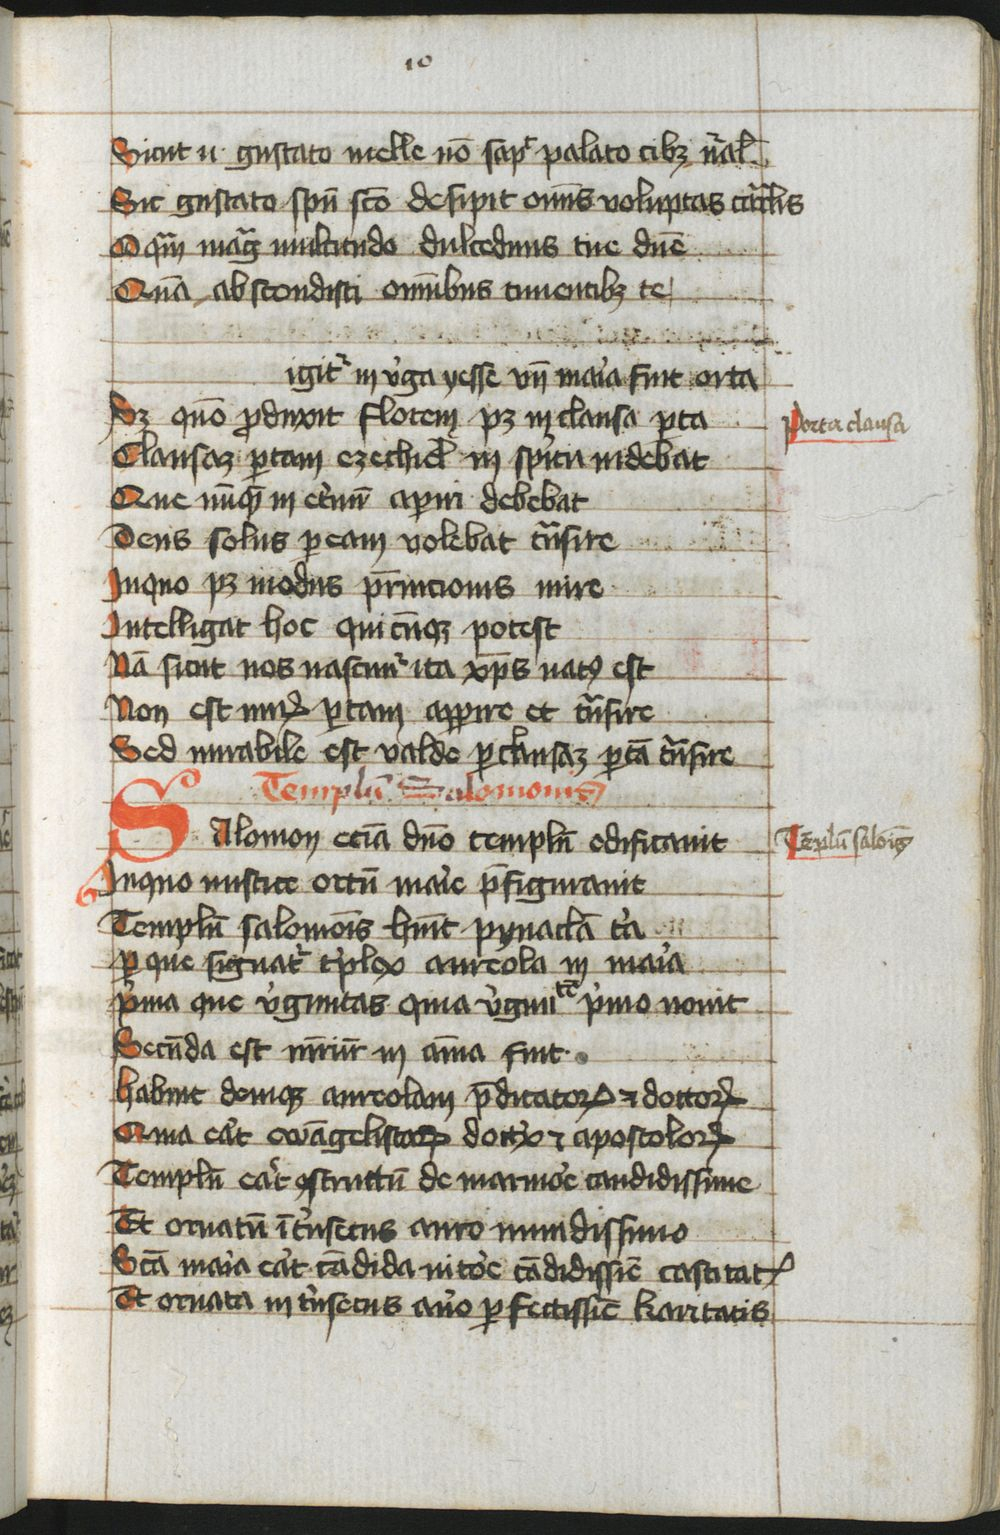 10
Sicut n gustato melle nō sapit palato cibꝫ nr̄al
Sic gustato spū scō desipit omīs voluptas carñlis
O qm̄ mag multitudo dulcedinis tue dn̄e
Quā abscondisti omnibus timentibꝫ te
igit᷑ in v̓ga yesse vn̄ mai̓a fuit orta
Sꝫ quō ꝓduxit florem pꝫ in clausa pꝛta
Clausaꝫ p̱tam ezechiel in spi̓tu uidebat
Que nūqꝫ in et̓nuꝫ apiri debebat
Deus solus p̱ eam volebat tn̄sire
In quo pꝫ modus p̄rincionis mire
Intelligat hoc qui cūqꝫ potest
Nā sicut nos nascimᷣ ita xp̄s natꝰ est
Non est miꝝ p̱tam apꝑire et tn̄sire
Sed mirabile est valde p̱ clausaꝫ p̱tā tn̄sire
Templū Salomonis
Salomon eciā dn̄o templū edificauit
In quo mistice ortū mai̓e p̄figurauit
Templū salomōis hūit pynaclā t̓a
p̱ que signat᷑ t̓plex aureola in mai̓a
p̓ma que v̓ginitas quia v̓gini tē p̓mo nouit
Secūda est mr̄iuꝫ in aīa fuit
habuit deniqꝫ aureolam p̄dicatoꝝ ⁊ doctoꝝ
Quia eāt ewāgelistaꝝ doctꝝ ⁊ apostoloꝝ
Templū eāt ꝯstructū de marmoe candidissime
Et ornatū īt̓nsecus auro mundissimo
Scā mai̓a eāt cādida nitoe cādidissīe castitatꝭ
Et ornata int̓nsecus auo p̱fectissīe karitatis
Porta clausa
Tēplū saloīs